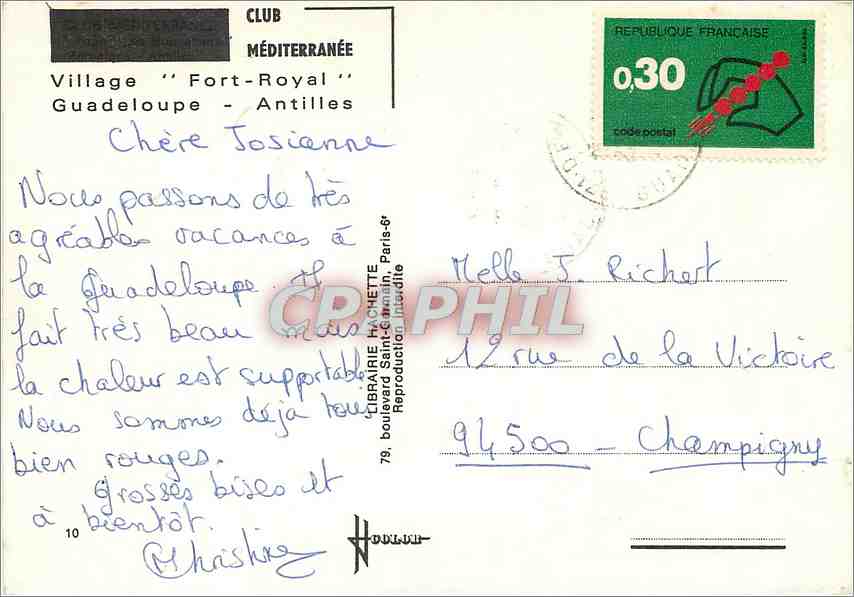 CLUB
MÉDITERRANÉE
Village " Fort-Royal "
Guadeloupe - Antilles
REPUBLIQUE FRANÇAISE
0,30
code postal
Chère Josianne
Nous passons de très
agréables vacances à
la Guadeloupe. Il
fait très beau mais
la chaleur est supportable
Nous sommes déjà tous
bien rouges.
Grosses bises et
à bientôt.
Christine
10
LIBRAIRIE HACHETTE
79, boulevard Saint-Germain, Paris-6e
Reproduction interdite
CPAPHIL
COLOR
Melle J. Richert
12 rue de la Victoire
94500 - Champigny